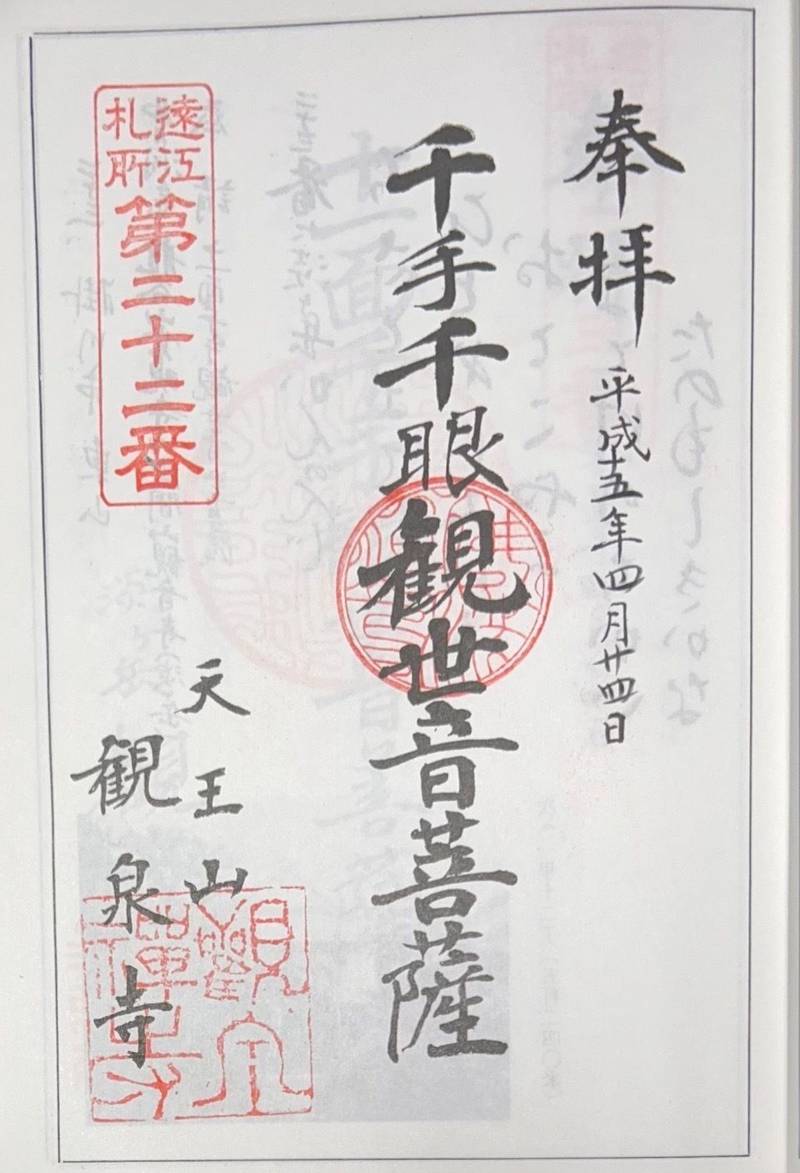 奉拝
平成十五年四月廿四日
千手千眼観世音菩薩
遠江
札所
第二十二番
天王山
観泉寺